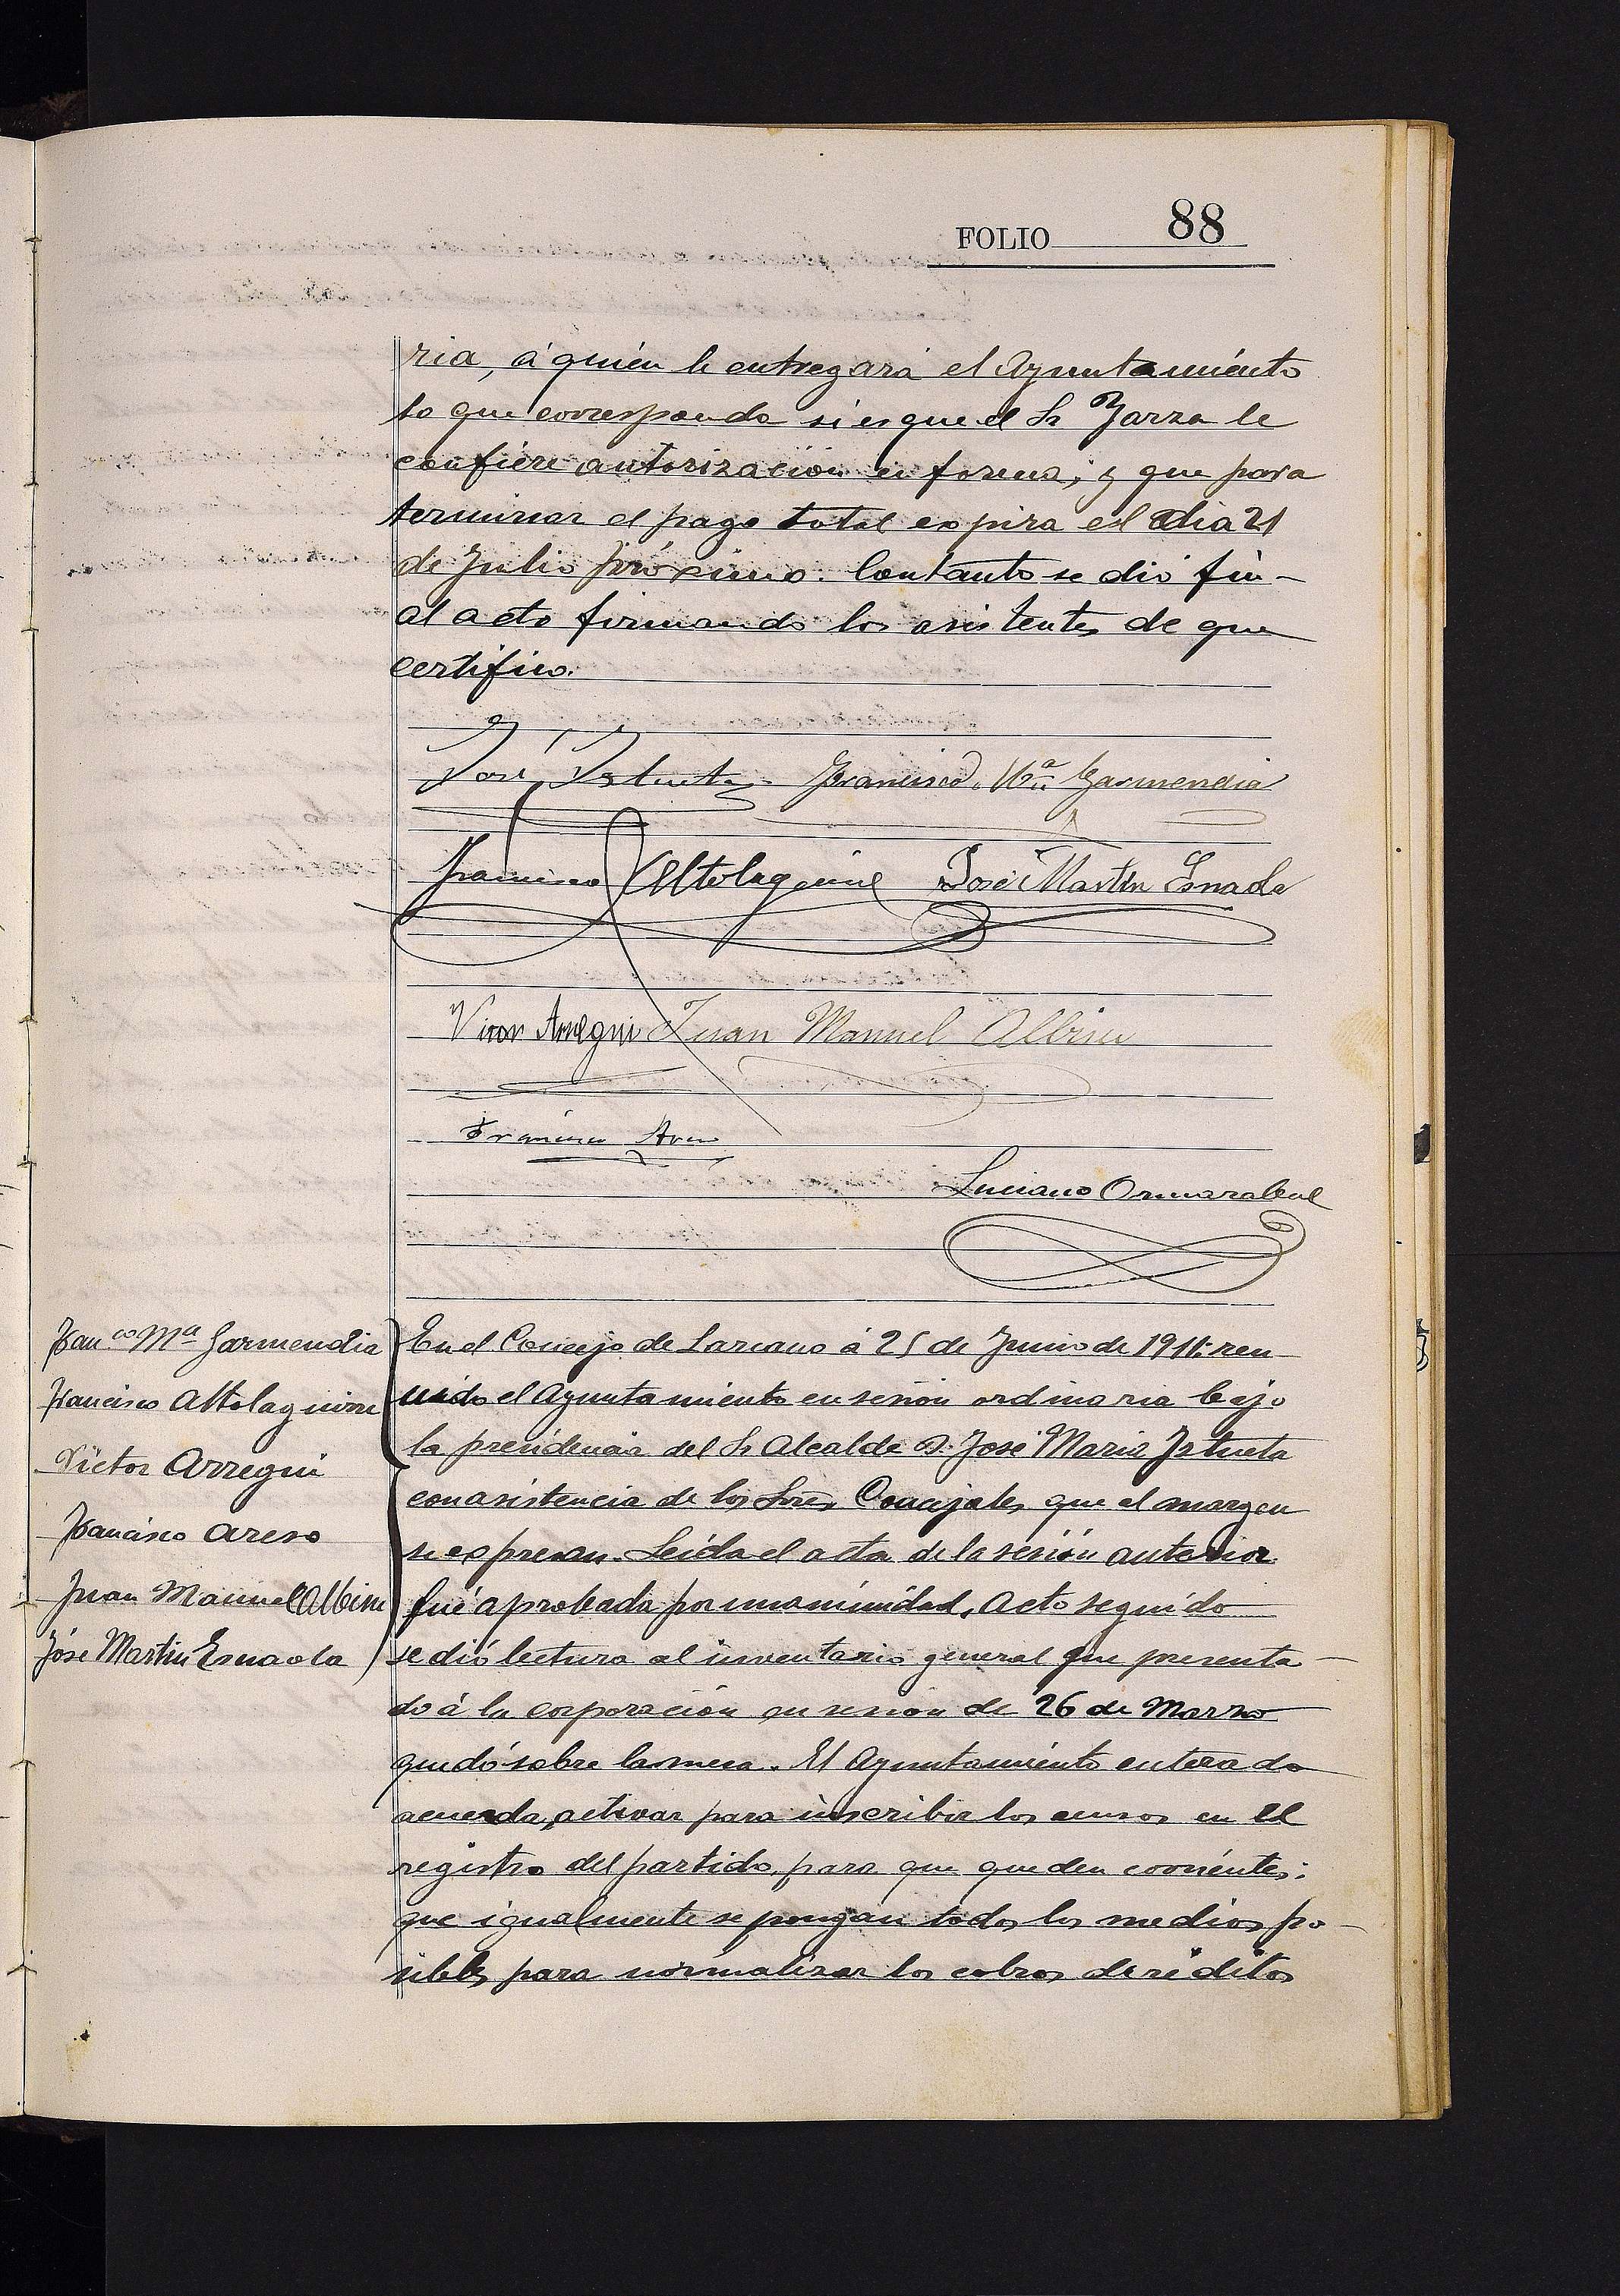 FOLIO 88
ria, á quién le entregará el Ayuntamiento
lo que corresponda si es que el Sr Zarza le
confiere autorización en forma; y que para
terminar el pago total expira el dia 21
de Julio próximo. Con tanto se dió fin
al acto firmando los asistentes de que
certifico.
José Istueta Francisco Mª Garmendia
Francisco Altolaguirre José Martin Esnaola
Victor Arregui Juan Manuel Albisu
Francisco Areso
Luciano Ormazabal
Fran.co Mª Garmendia
Francisco Altolaguirre
Victor Arregui
Francisco Areso
Juan Manuel Albisu
José Martin Esnaola
En el Concejo de Lazcano á 25 de Junio de 1911: reu
nido el Ayuntamiento en sesión ordinaria bajo
la presidencia del Sr Alcalde D. José Maria Istueta
con asistencia de los Sres Concejales que al margen
se expresan. Leida el acta de la sesión anterior
fué aprobada por unanimidad, Acto seguido
se dió lectura al inventario general que presenta
do á la corporación en sesion de 26 de Marzo
quedó sobre la mesa. El Ayuntamiento enterado
acuerda, activar para inscribir los censos en el
registro del partido, para que queden corrientes;
que igualmente se pongan todos los medios po
sibles para normalizar los cobros de réditos